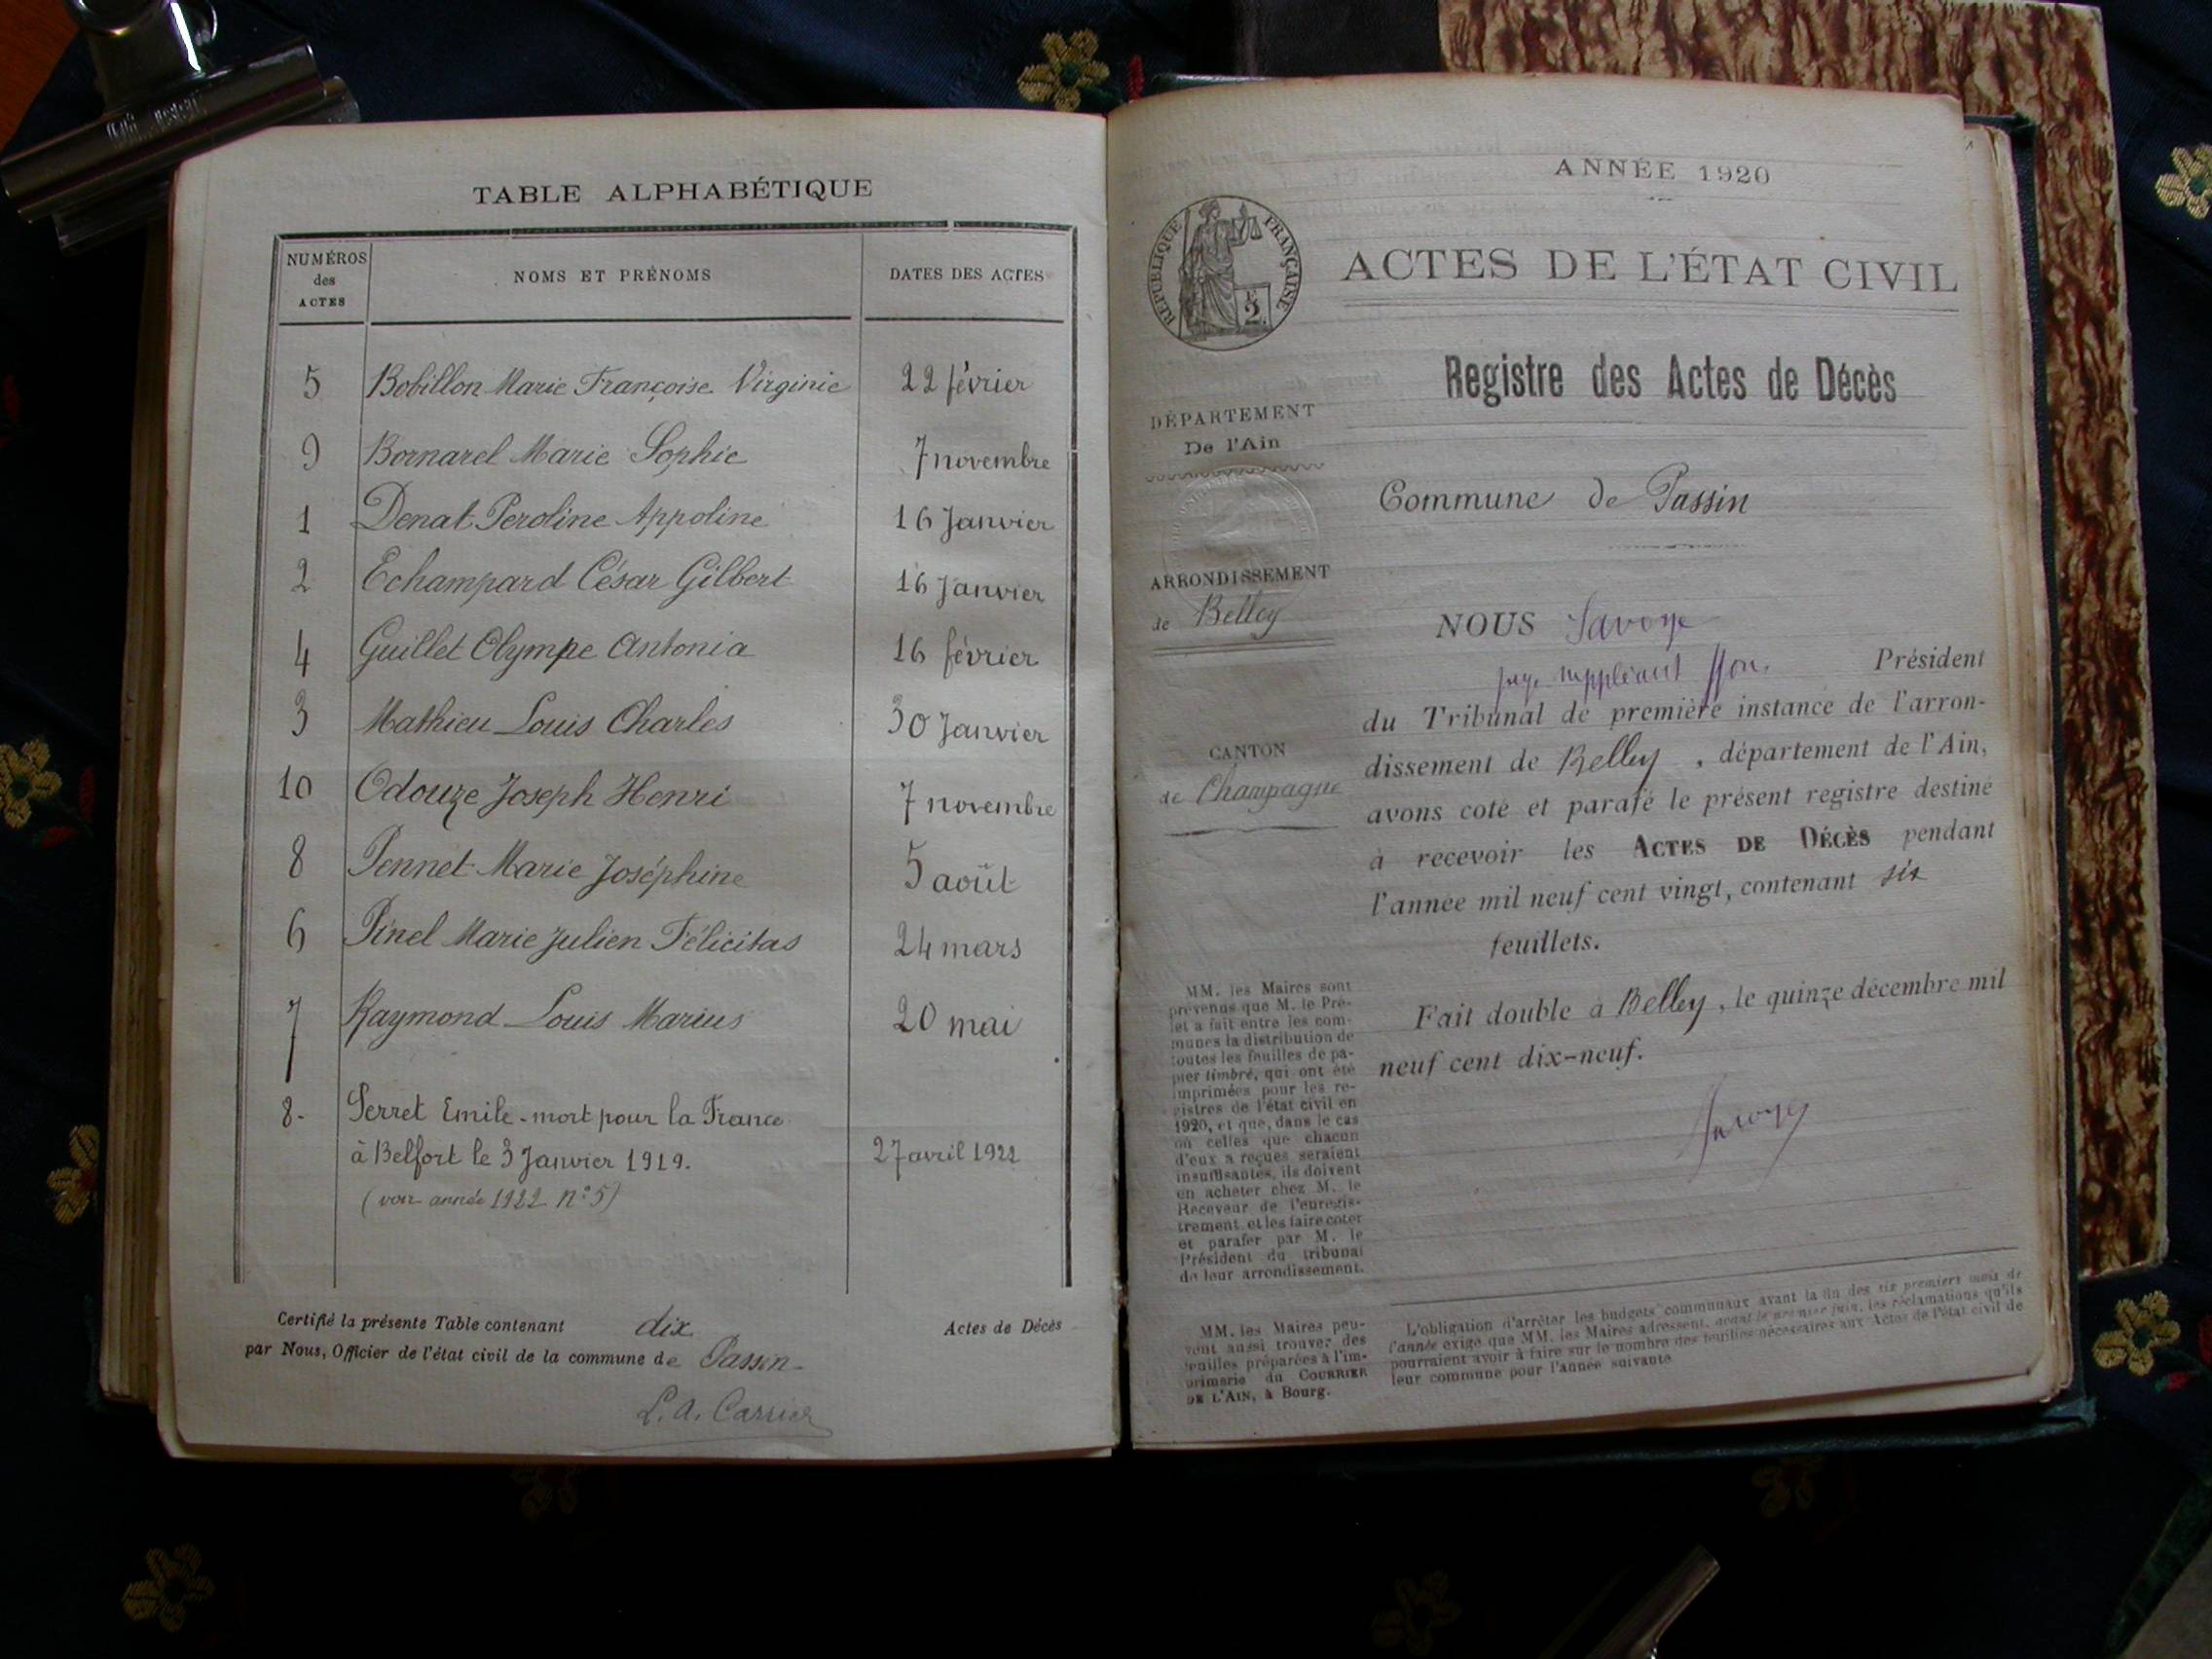 TABLE ALPHABÉTIQUE
NUMÉROS des ACTES
NOMS ET PRÉNOMS
DATES DES ACTES
5 Bobillon Marie Françoise Virginie 22 février
9 Bornarel Marie Sophie 7 novembre
1 Denat Peroline Appoline 16 Janvier
2 Echampard César Gilbert 16 Janvier
4 Guillet Olympe Antonia 16 février
3 Mathieu Louis Charles 30 Janvier
10 Odouze Joseph Henri 7 novembre
8 Pennet Marie Joséphine 5 août
6 Pinel Marie Julien Félicitas 24 mars
7 Raymond Louis Marius 20 mai
8- Perret Emile - mort pour la France
à Belfort le 3 Janvier 1919. 27 avril 1922
(voir année 1922 N° 5)
Certifié la présente Table contenant dix Actes de Décès
par Nous, Officier de l'état civil de la commune de Passin-
L. A. Carrier
ANNÉE 1920
RÉPUBLIQUE FRANÇAISE
2
ACTES DE L'ÉTAT CIVIL
Registre des Actes de Décès
DÉPARTEMENT
De l'Ain
Commune de Passin
ARRONDISSEMENT
de Belley
CANTON
de Champagne
NOUS Savoye
juge suppléant ffon. Président
du Tribunal de première instance de l'arron-
dissement de Belley, département de l'Ain,
avons coté et parafé le présent registre destiné
à recevoir les ACTES DE DÉCÈS pendant
l'année mil neuf cent vingt, contenant six
feuillets.
Fait double à Belley, le quinze décembre mil
neuf cent dix-neuf.
Savoye
MM. les Maires sont
prévenus que M. le Pré-
fet a fait entre les com-
munes la distribution de
toutes les feuilles de pa-
pier timbré, qui ont été
imprimées pour les re-
gistres de l'état civil en
1920, et que, dans le cas
où celles que chacun
d'eux a reçues seraient
insuffisantes, ils doivent
en acheter chez M. le
Receveur de l'enregis-
trement et les faire coter
et parafer par M. le
Président du tribunal
de leur arrondissement.
MM. les Maires peu-
vent aussi trouver des
feuilles préparées à l'im-
primerie du COURRIER
DE L'AIN, à Bourg.
L'obligation d'arrêter les budgets communaux avant la fin des six premiers mois de
l'année exige que MM. les Maires adressent, avant le premier juin, les réclamations qu'ils
pourraient avoir à faire sur le nombre des feuilles nécessaires aux Actes de l'état civil de
leur commune pour l'année suivante